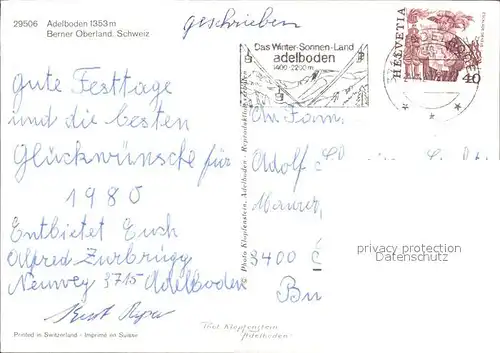 29506 Adelboden 1353 m
Berner Oberland. Schweiz
geschrieben
Gute Festtage
und die besten
Glückwünsche für
1980
Entbietet Euch
Alfred Zurbrügg
Neuweg 3715 Adelboden
Printed in Switzerland - Imprimé en Suisse
Das Winter-Sonnen-Land
adelboden
1400-2200 m
HELVETIA
40
An Fam.
Adolf
Maurer,
3400
Bu
privacy protection
Datenschutz
© Photo Klopfenstein, Adelboden - Reproduktion verboten
Phot Klopfenstein
Adelboden